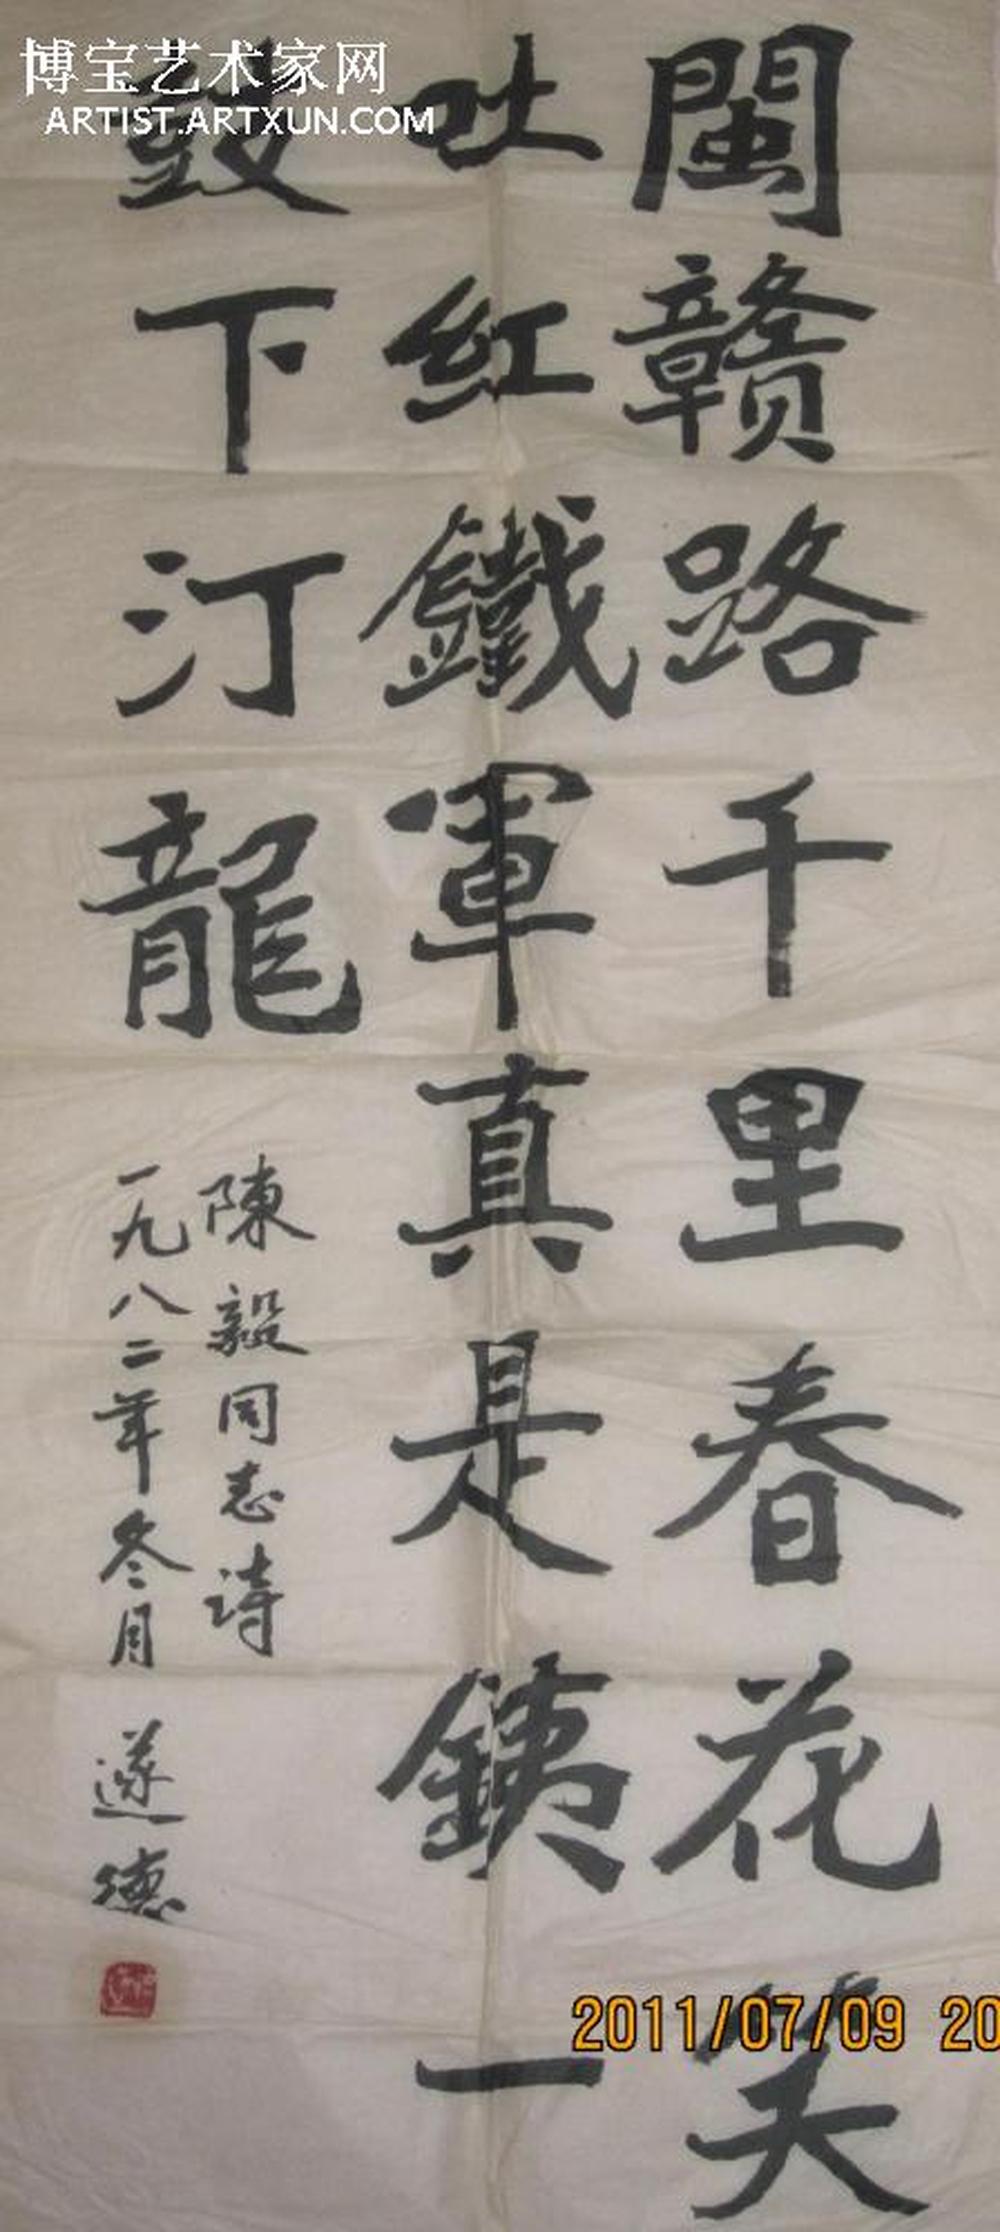 博宝艺术家网
ARTIST.ARTXUN.COM
閩赣路千里春花笑
吐红鐵軍真是鐵一
鼓下汀龍
陳毅同志詩
一九八二年冬月
遂德
2011/07/09 20